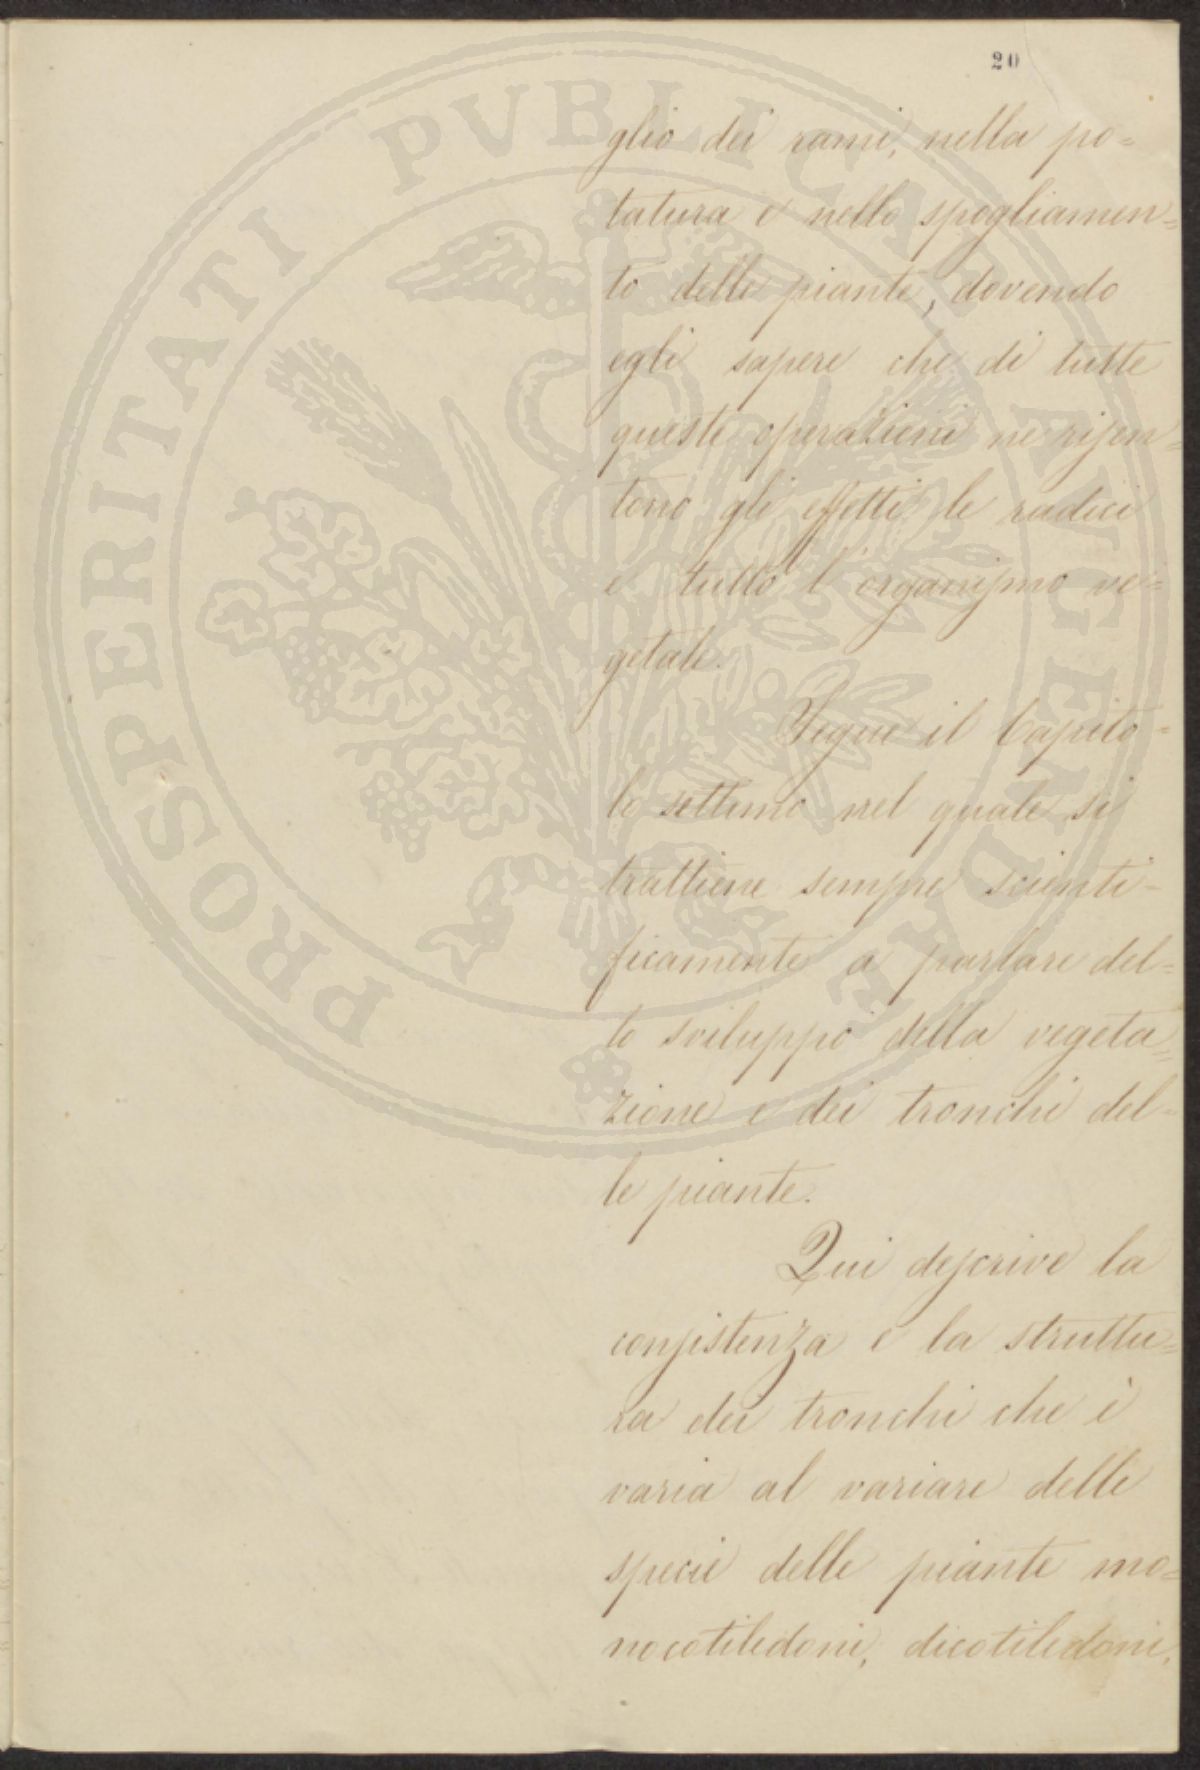 20
glio dei rami, nella po=
tatura e nello spogliamen=
to delle piante, dovendo
egli sapere che di tutte
queste operazioni ne risen=
tono gli effetti le radici
e tutto l'organismo ve=
getale.
Segue il Capito=
lo settimo nel quale si
trattiene sempre scienti=
ficamente a parlare del=
lo sviluppo della vegeta=
zione e dei tronchi del=
le piante.
Qui descrive la
consistenza e la struttu=
ra dei tronchi che è
varia al variare delle
specie delle piante mo=
nocotiledoni, dicotiledoni,
PROSPERITATI PVBLICAE AVGENDAE